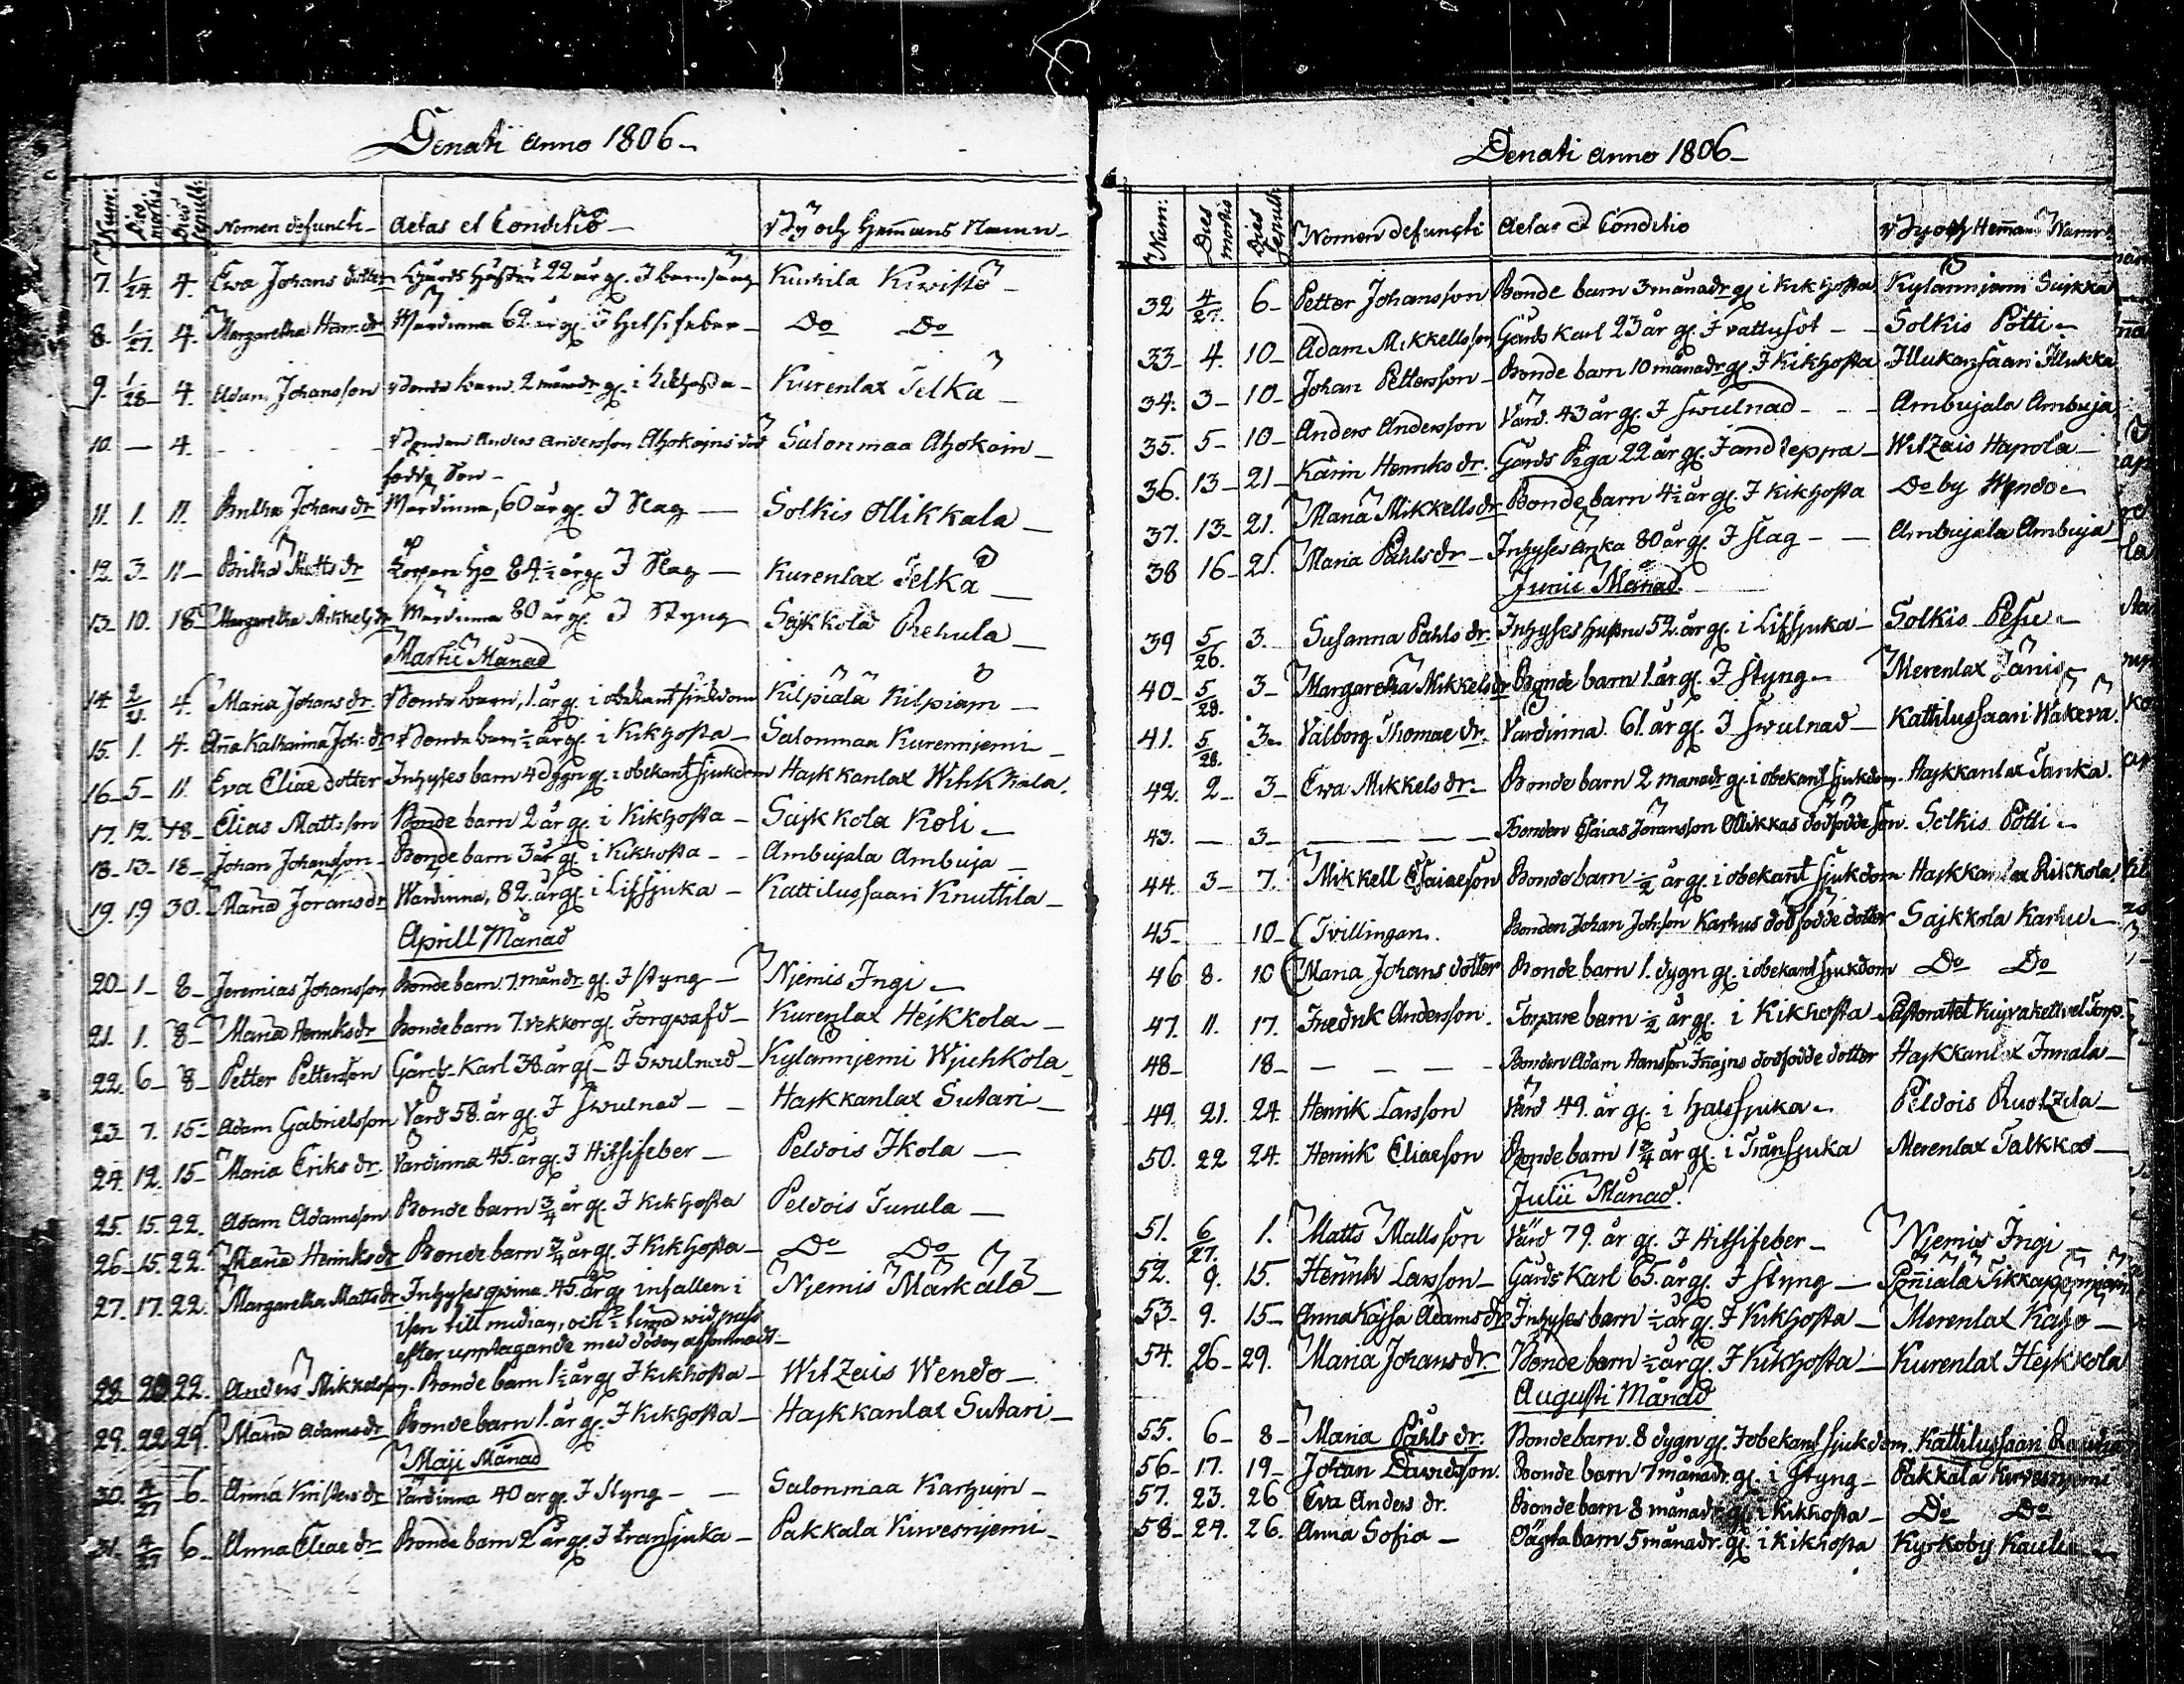 Denati anno 1806
Num: Dies mortis Dies sepult: Nomen defuncti Aetas et Conditio By och Hemmans Namn
7. 1/24. 4. Ewa Johans dotter Gårds Hustru 22 år gl. I barnsäng Kurkila Kiwistö
8. 1/27. 4. Margaretha Henr. dr Wärdinna 62 år gl. I Hetsifeber Do Do
9. 1/28 4. Adam Johansson Bonde barn 2 månadr gl. i kikhosta Kurenlax Telkä
10. — 4. — Bonden Anders Andersson Ahokains död Salonmaa Ahokain
födde Son
11. 1. 11. Britha Johans dr Wärdinna, 60 år gl. I Slag Solkis Ollikkala
12. 3 11 Britha Matts dr 84 1/2 år gl. I Slag Kurenlax Telkä
13. 10. 18 Margaretha Mikkels dr Wärdinna 80 år gl. I Styng Säjkkola Rehula
Martii Månad
14. 2/21. 4. Maria Johans dr Bonde barn, 1. år gl. i obekant sjukdom Kilpiälä Kilpiäin
15. 1. 4. Aña Katharina Joh: dr Bonde barn 1/2 år gl. i Kikhosta Salonmaa Kurenniemi
16 5 11. Eva Eliae dotter Inhyses barn 4 dygn gl. i obekant sjukdom Hajkkanlax Wihkkala.
17. 12. 18 Elias Mattsson Bonde barn 2 år gl. i Kikhosta Säjkkola Koli
18 13 18 Johan Johansson Bonde barn 3 år gl. i Kikhosta Ambujala Ambuja
19. 19 30. Maria Jörans dr Wärdinna, 82. år gl. i Lifsjuka Kattilussaari Knuthila
Aprill Månad
20 1 8 Jeremias Johansson Bonde barn 7 månadr gl. I styng Njemis Ingi
21. 1. 8 Maria Henriks dr Bonde barn 7. vekkor gl. Förqvafd Kurenlax Hejkkola
22. 6 8 Petter Pettersson Gårds Karl 38 år gl. I Swulnad Kylänniemi Wjuhkola
23 7. 15 Adam Gabrielsson Värd 58. år gl. I Swulnad Hajkkanlax Sutari
24. 12. 15 Maria Eriks dr. Värdinna 45. år gl. I Hitsifeber Peldois Ikola
25. 15. 22. Adam Adamsson Bonde barn 3/4 år gl. I Kikhosta Peldois Turula
26 15. 22. Maria Henriks dr Bonde barn 3/4 år gl. I Kikhosta Do Do
27. 17. 22. Margaretha Matts dr Inhyses qvinna 45. år gl. infallen i Njemis Märkälä
isen till midian, och 1/2 tima wid pass
efter upptagande med döden afsomnadt
28. 20 22. Anders Mikkelsson Bonde barn 1 1/2 år gl. I Kikhosta Witzais Wendo
29. 22 29. Maria Adams dr Bonde barn 1. år gl. I Kikhosta Hajkkanlax Sutari
Maji Månad
30. 4/27 6 Anna Kristers dr Värdinna 40 år gl. I Styng Salonmaa Karhuin
31. 4/27 6 Anna Eliae dr Bonde barn 2 år gl. I transjuka Pakkala Kirvesnjemi
Denati anno 1806
Num: Dies mortis Dies Sepult: Nomen defuncti Aetas et Conditio By och Hemans Namn
32 4/27. 6 Petter Johansson Bonde barn 3 månadr gl. i kikhosta Kylänniemi Suikka
33 4. 10 Adam Mikkellsson Gårds Karl 23 år gl. I vattusot Solkis Pötti
34. 3 10 Johan Pettersson Bonde barn 10 månadr gl. I Kikhosta Illukansaari Illukka
35. 5 10 Anders Andersson Värd. 43 år gl. I swulnad Ambujala Ambuja
36. 13 21 Karin Henriks dr. Gårds Piga 22 år gl. I andteppa Witzais Hapola
37. 13 21. Maria Mikkells dr Bonde barn 4 1/2 år gl. I Kikhosta Do by Wendo
38 16 21. Maria Påhls dr Inhyses Enka 80 år gl. I slag Ambujala Ambuja
Junii Månad.
39 5/26. 3. Susanna Påhls dr. Inhyses hustru 52. år gl. i Lifsjuka Solkis Pesu
40 5/28. 3 Margaretha Mikkels dr Bonde barn 1. år gl. I styng Merenlax Jänis
41. 5/28. 3 Valborg Thomae dr. Värdinna. 61. år gl. I swulnad Kattilussaari Wäkeva.
42. 2 3 Ewa Mikkels dr Bonde barn 2 månadr gl. i obekant sjukdom. Hajkkanlax Tanka.
43. — 3 — Bonden Esaias Jöransson Ollikkas dödfödde son. Solkis Pötti
44. 3 7. Mikkell Esaiaeson Bonde barn 1/2 år gl. i obekant sjukdom Hajkkanlax Rikkola
45 10 Tvillingan. Bonden Johan Johsson Karhus dödfödde dotter Sajkkola Karhu
46 8. 10 Maria Johans dotter Bonde barn 1. dygn gl. i obekant sjukdom Do Do
47. 11. 17. Fredrik Andersson. Torpare barn 1/2 år gl. i Kikhosta Torp.
48 18 — Bonden Adam Hansson Iñajns dödfödde dotter Hajkkanlax Innala
49. 21. 24. Henrik Larsson Värd 49. år gl. i halssjuka Peldois Ruotzila
50. 22 24. Henrik Eliaeson Bonde barn 1 3/4 år gl. i Transjuka Merenlax Talkko
Julii Månad.
51. 6/27. 1. Matts Mattsson Värd 79. år gl. I Hitsifeber Njemis Ingi
52. 9. 15. Henrik Larsson Gårds Karl 65. år gl. I styng
53 9. 15 Anna Kajsa Adams dr Inhyses barn 1/2 år gl. I Kikhosta Merenlax Kaijo
54. 26 29. Maria Johans dr Bonde barn 1/2 år gl. I Kikhosta Kurenlax Hejkkola
Augusti Månad
55. 6 8 Maria Påhls dr. Bonde barn. 8 dygn gl. I obekant sjukdom. Kattilussaari
56 17. 19 Johan Davidsson. Bonde barn 7 månadr. gl. i styng Pakkala Kirvesnjemi
57. 23. 26 Eva Anders dr. Bonde barn 8 månadr. gl. i kikhosta Do Do
58 24. 26. Anna Sofia Oägta barn 5 månadr. gl. i kikhosta Kyrkoby